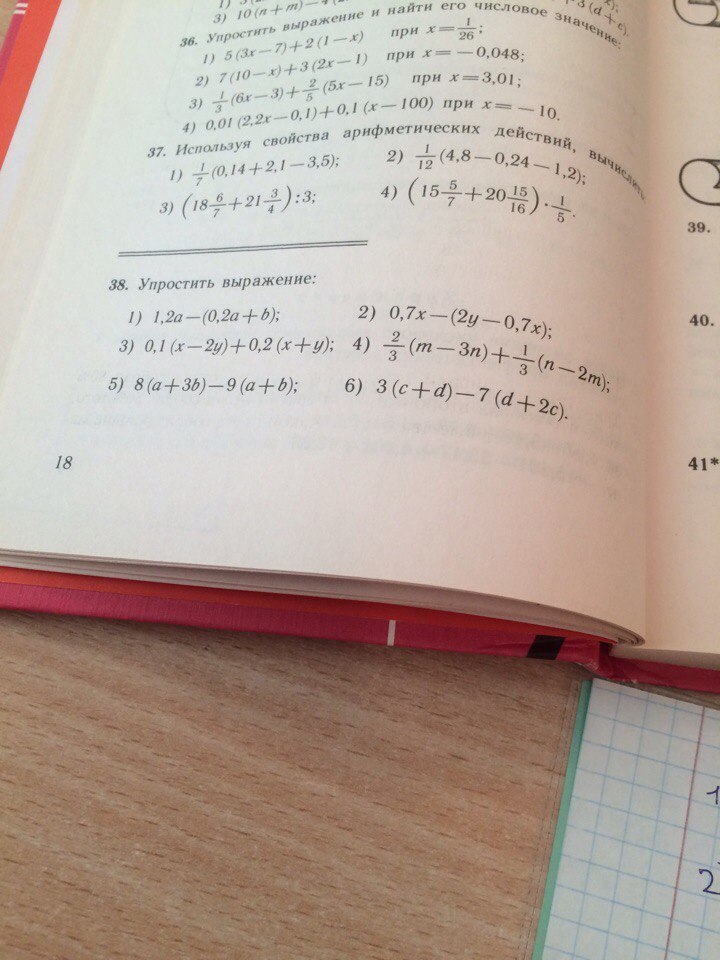 3) 10 (n + m) — 4
+ 3 (d + c).
36. Упростить выражение и найти его числовое значение:
1) 5 (3x — 7) + 2 (1 — x) при x = 1/26;
2) 7 (10 — x) + 3 (2x — 1) при x = — 0,048;
3) 1/3 (6x — 3) + 2/5 (5x — 15) при x = 3,01;
4) 0,01 (2,2x — 0,1) + 0,1 (x — 100) при x = — 10.
37. Используя свойства арифметических действий, вычислить:
1) 1/7 (0,14 + 2,1 — 3,5); 2) 1/12 (4,8 — 0,24 — 1,2);
3) (18 6/7 + 21 3/4) : 3; 4) (15 5/7 + 20 15/16) · 1/5.
38. Упростить выражение:
1) 1,2a — (0,2a + b); 2) 0,7x — (2y — 0,7x);
3) 0,1 (x — 2y) + 0,2 (x + y); 4) 2/3 (m — 3n) + 1/3 (n — 2m);
5) 8 (a + 3b) — 9 (a + b); 6) 3 (c + d) — 7 (d + 2c).
18
39.
40.
41*
1
2